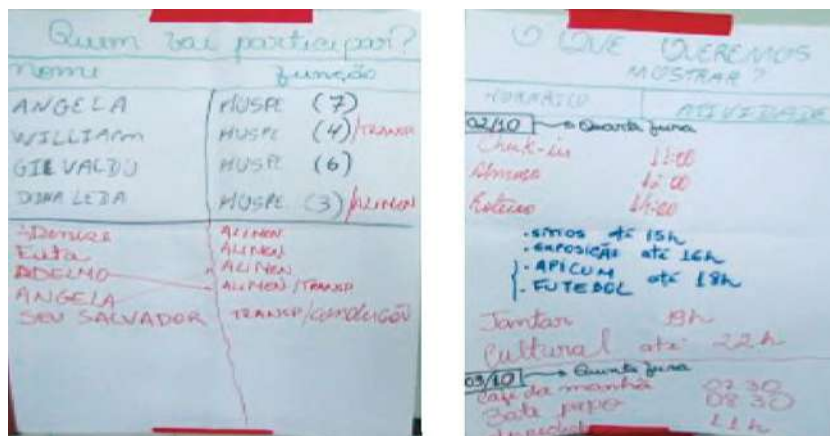 Quem vai participar?
nome função
ANGELA HOSPE (7)
WILLIAM HOSPE (4)/TRANSP
GILVALDO HOSPE (6)
DONA LEDA HOSPE (3)/ALIMEN
Denise ALIMEN
ALIMEN
ADELMO ALIMEN
ANGELA ALIMEN/TRANSP
SEU SALVADOR TRANSP/condução
O QUE QUEREMOS
MOSTRAR?
HORÁRIO ATIVIDADE
02/10 → Quarta feira
Chek-in 11:00
Almoço 12:00
Roteiro 14:00
. SITIOS até 15h
. EXPOSIÇÃO até 16h
. APICUM até 18h
. FUTEBOL
Jantar 19h
Cultural até 22h
03/10 → Quinta feira
café da manhã 07 30
Bate papo 08 30
11h